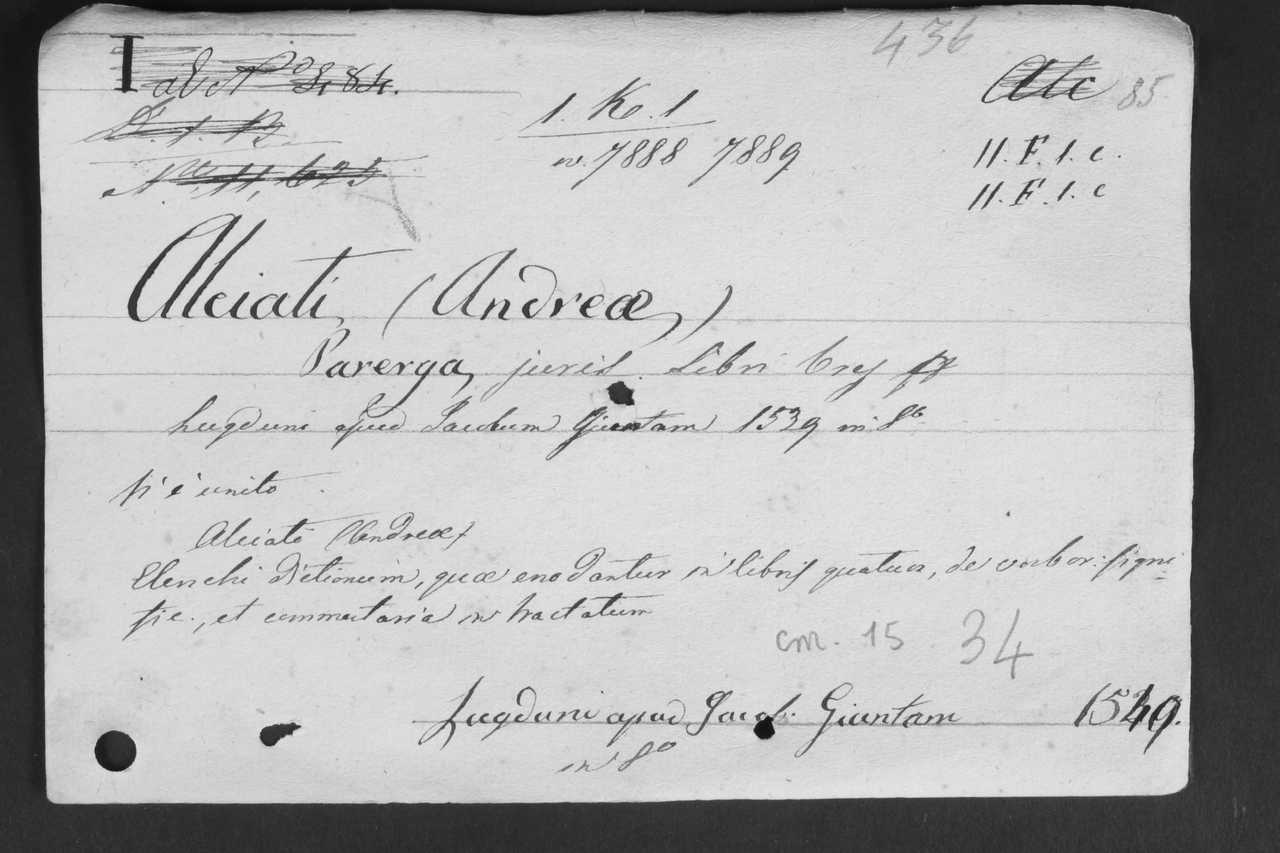 436
Alc 85
1. K. 1
n. 7888 7889
11. F. 1. c.
11. F. 1. c
Alciati (Andreæ)
Parerga juris. Libri tres
Lugduni apud Jacobum Giuntam 1539 in 8º
Si è unito.
Alciati (Andreæ)
Elenchi dictionum, quæ enodantur in libris quatuor, de verbor: signi
fic., et commentaria in tractatum
cm. 15 34
Lugduni apud Jacob. Giuntam 1549.
in 8º